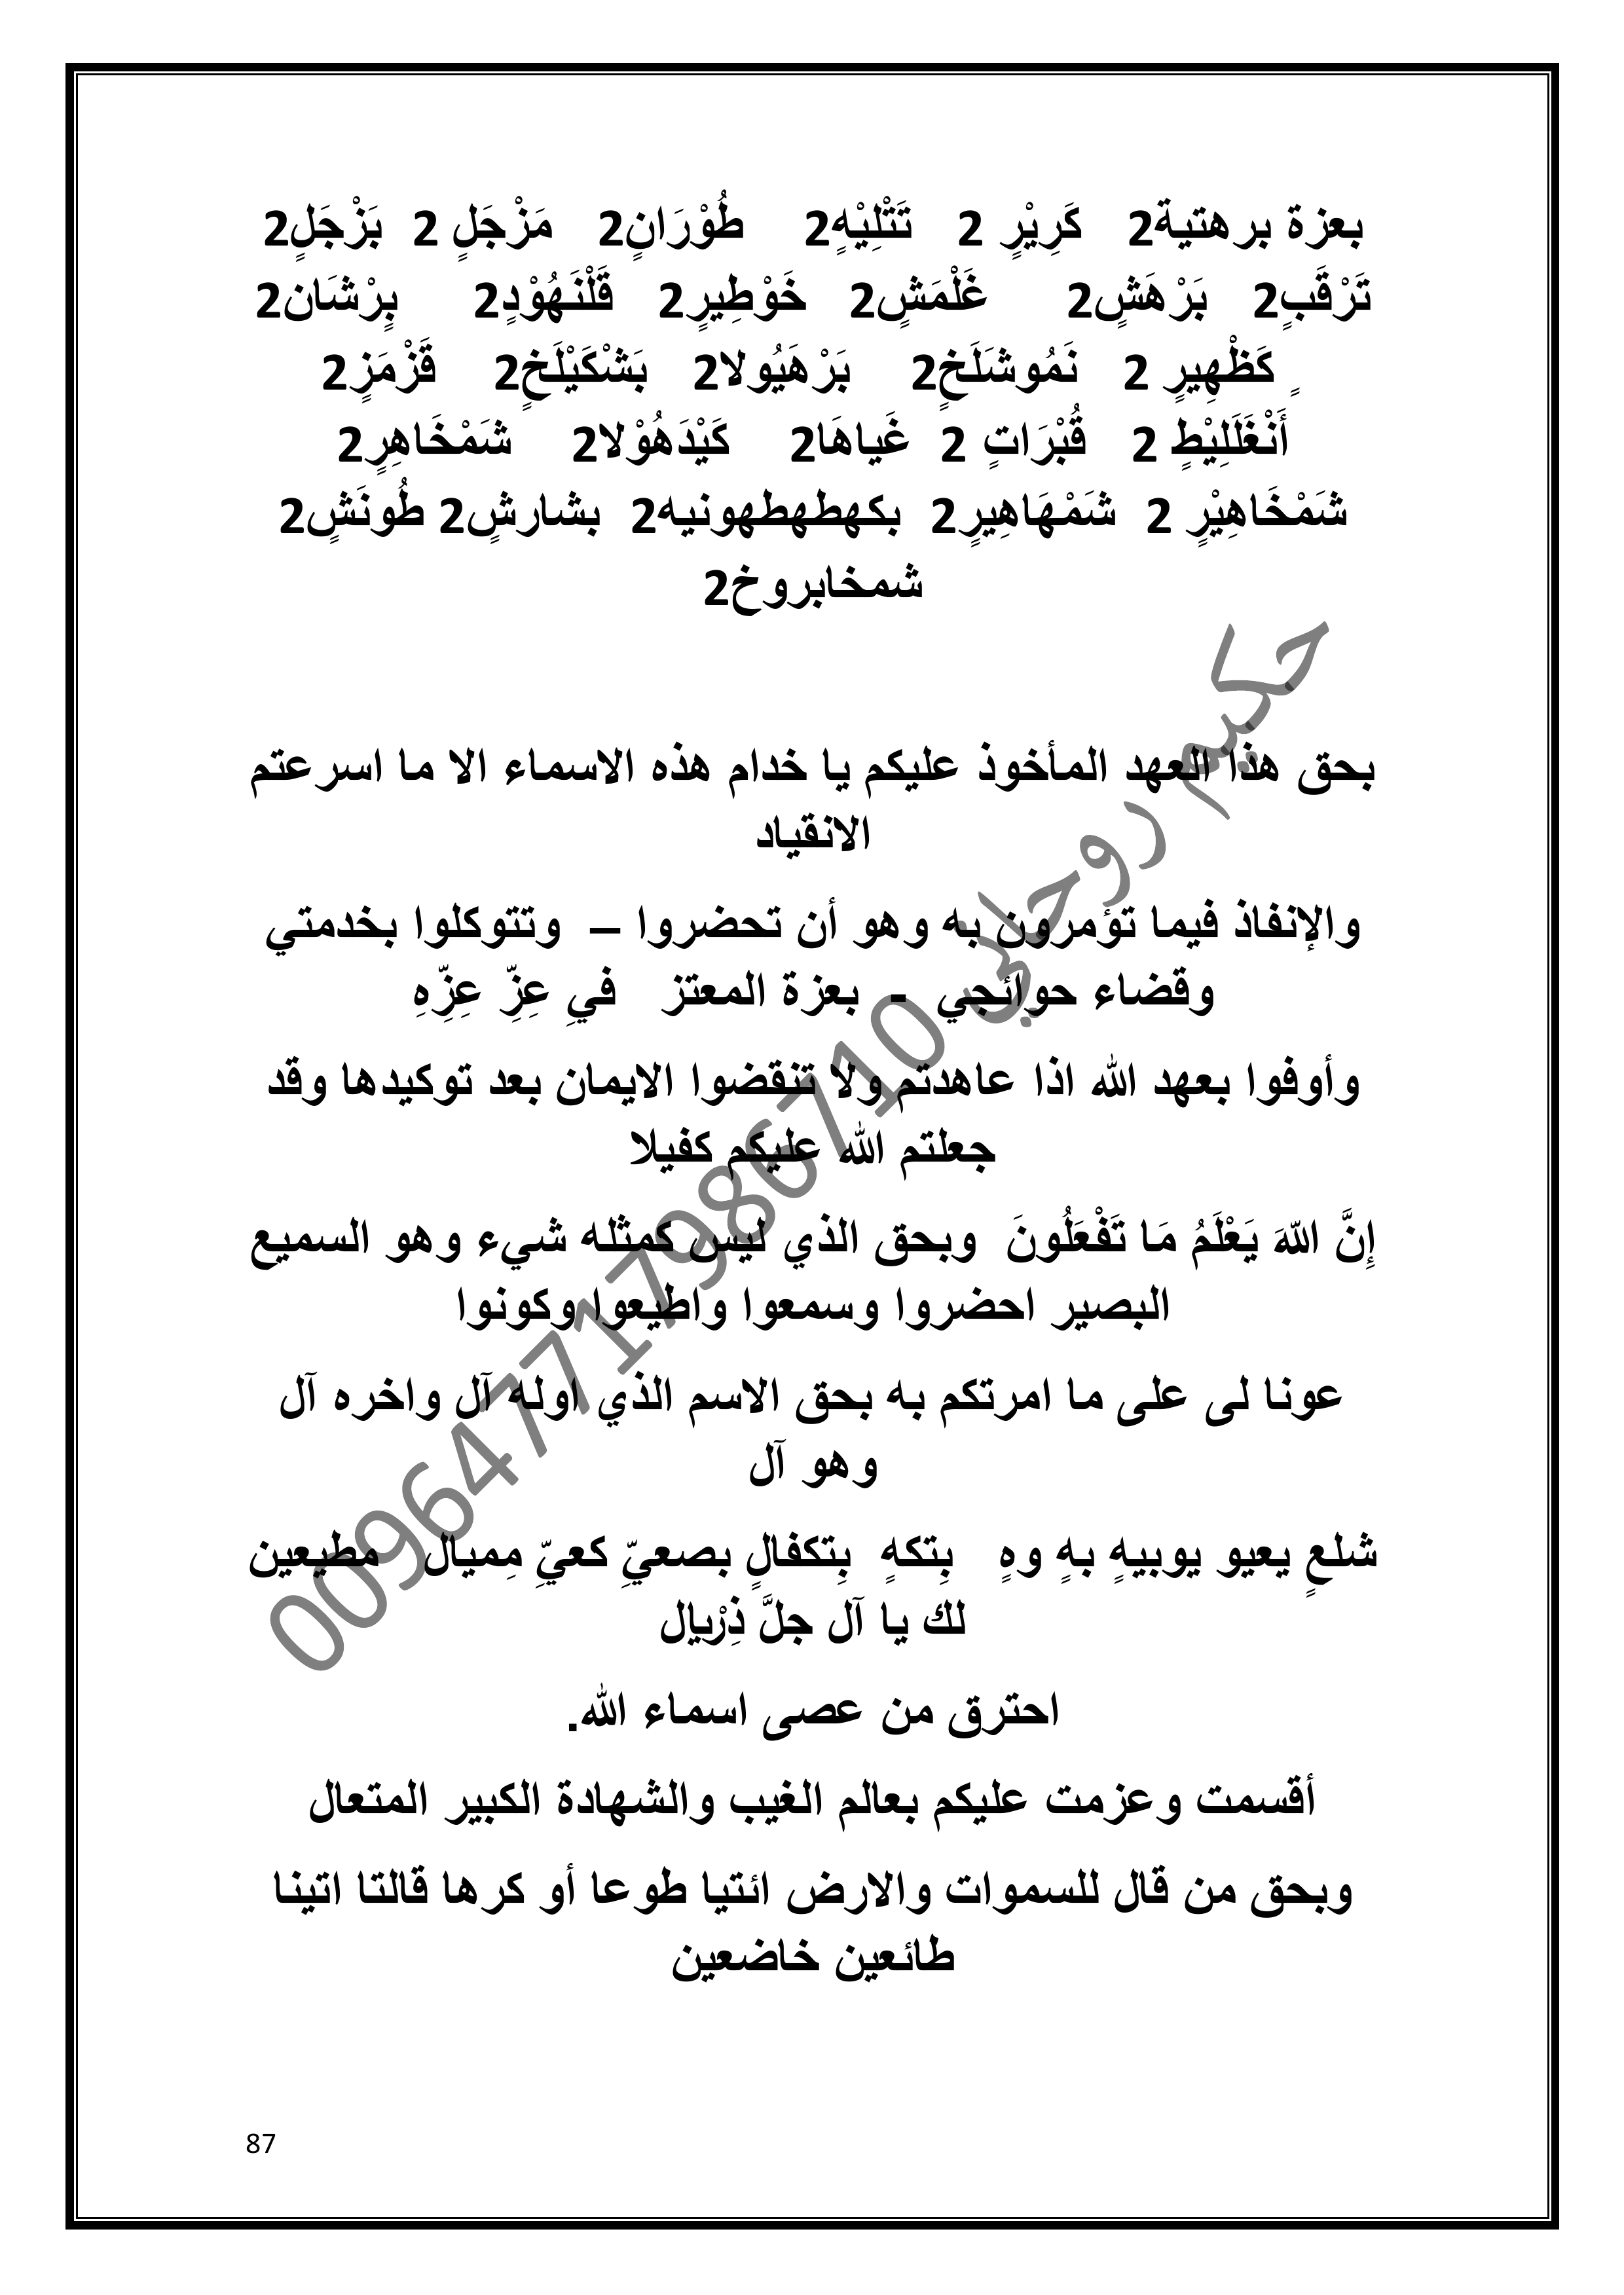 بعزة برهتية2 كَرِيْرٍ 2 تَتْلِيْهٍ2 طُوْرَانٍ2 مَزْجَلٍ 2 بَزْجَلٍ2
تَرْقَبٍ2 بَرْهَشٍ2 غَلْمَشٍ2 خَوْطِيرٍ2 قَلْنَهُوْدٍ2 بِرْشَان2
ٍ كَظْهِيرٍ 2 نَمُوشَلَخٍ2 بَرْهَيُولا2 بَشْكَيْلَخٍ2 قَزْمَزٍ2
أَنْغَلَلِيْطٍ 2 قُبْرَاتٍ 2 غَياهَا2 كَيْدَهُوْلا2 شَمْخَاهِرٍ2
شَمْخَاهِيْرٍ 2 شَمْهَاهِيرٍ2 بكهطهطهونيه2 بشارشٍ2 طُونَشٍ2
شمخابروخ2
بحق هذا العهد المأخوذ عليكم يا خدام هذه الاسماء الا ما اسرعتم
الانقياد
والإنفاذ فيما تؤمرون به وهو أن تحضروا – وتتوكلوا بخدمتي
وقضاء حوائجي - بعزة المعتز فيِ عِزِّ عِزِّهِ
وأوفوا بعهد الله اذا عاهدتم ولا تنقضوا الايمان بعد توكيدها وقد
جعلتم الله عليكم كفيلا
إِنَّ اللّهَ يَعْلَمُ مَا تَفْعَلُونَ وبحق الذي ليس كمثله شيء وهو السميع
البصير احضروا وسمعوا واطيعوا وكونوا
عونا لى على ما امرتكم به بحق الاسم الذي اوله آل واخره آل
وهو آل
شلعٍ يعيو يوبيهٍ بهٍ وهٍ بِتكهٍ بِتكفالٍ بصعيِّ كعيِّ مِميال مطيعين
لك يا آل جلَّ ذِرْيايل
احترق من عصى اسماء الله.
أقسمت وعزمت عليكم بعالم الغيب والشهادة الكبير المتعال
وبحق من قال للسموات والارض ائتيا طوعا أو كرها قالتا اتينا
طائعين خاضعين
حكيم روحاني 009647717986710
87